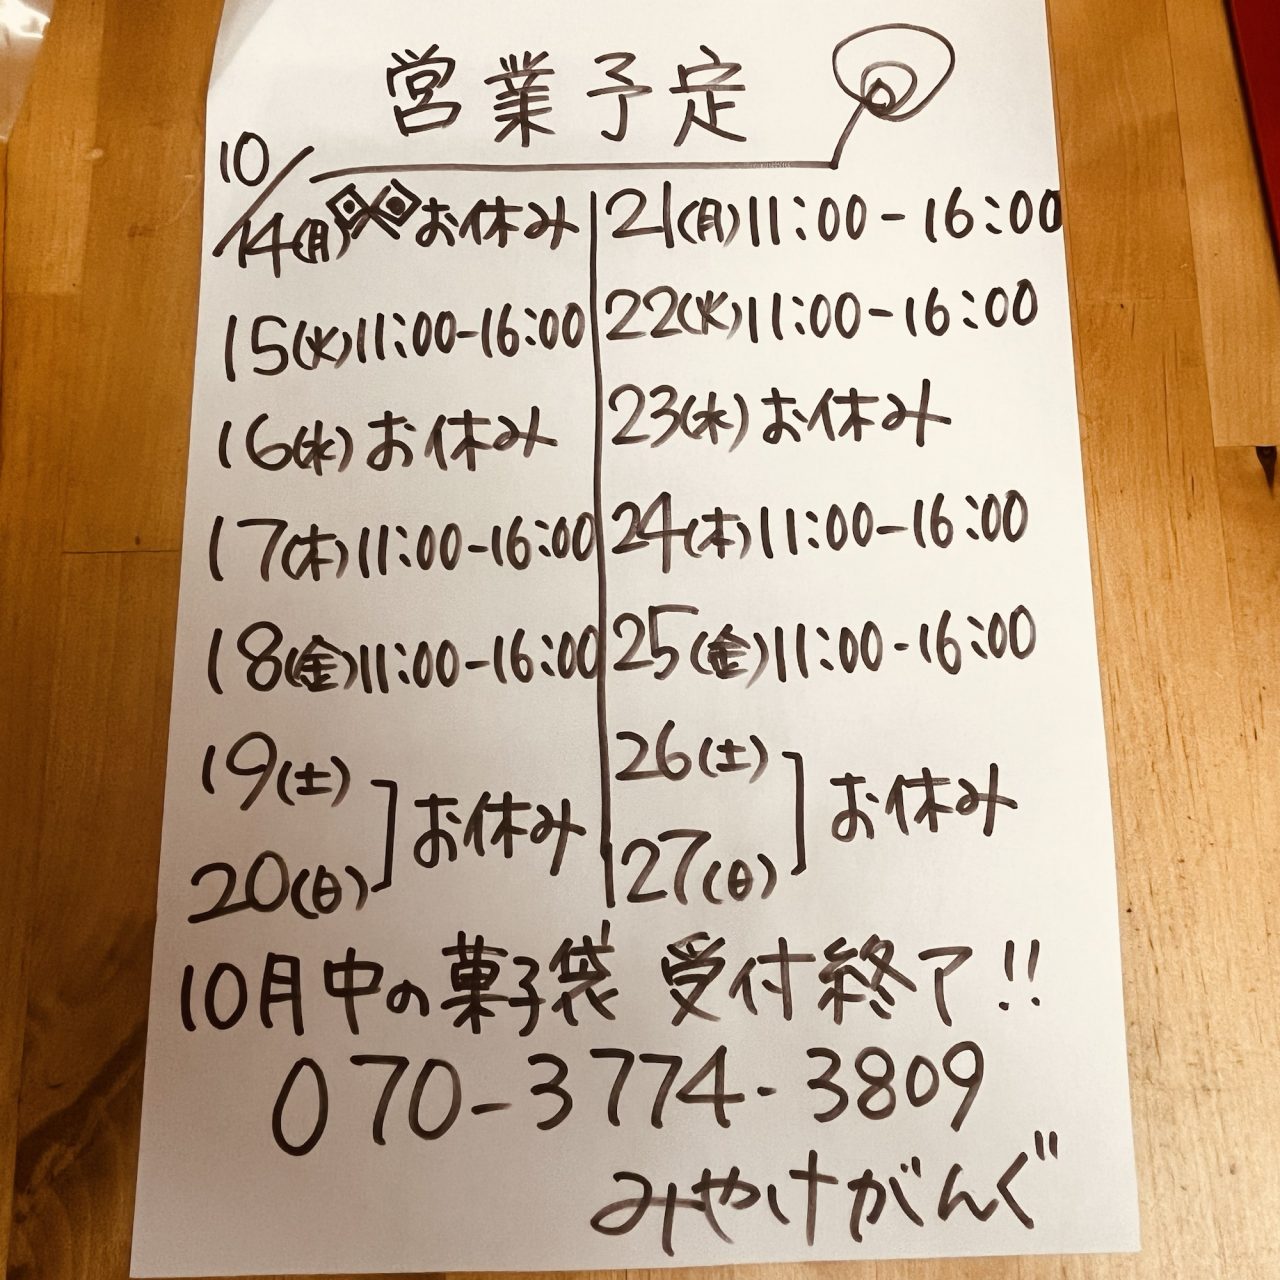 営業予定
10/14(月) お休み
15(火) 11:00-16:00
16(水) お休み
17(木) 11:00-16:00
18(金) 11:00-16:00
19(土)
20(日)
お休み
21(月) 11:00-16:00
22(火) 11:00-16:00
23(水) お休み
24(木) 11:00-16:00
25(金) 11:00-16:00
26(土)
27(日)
お休み
10月中の菓子袋 受付終了!!
070-3774-3809
みやけがんぐ